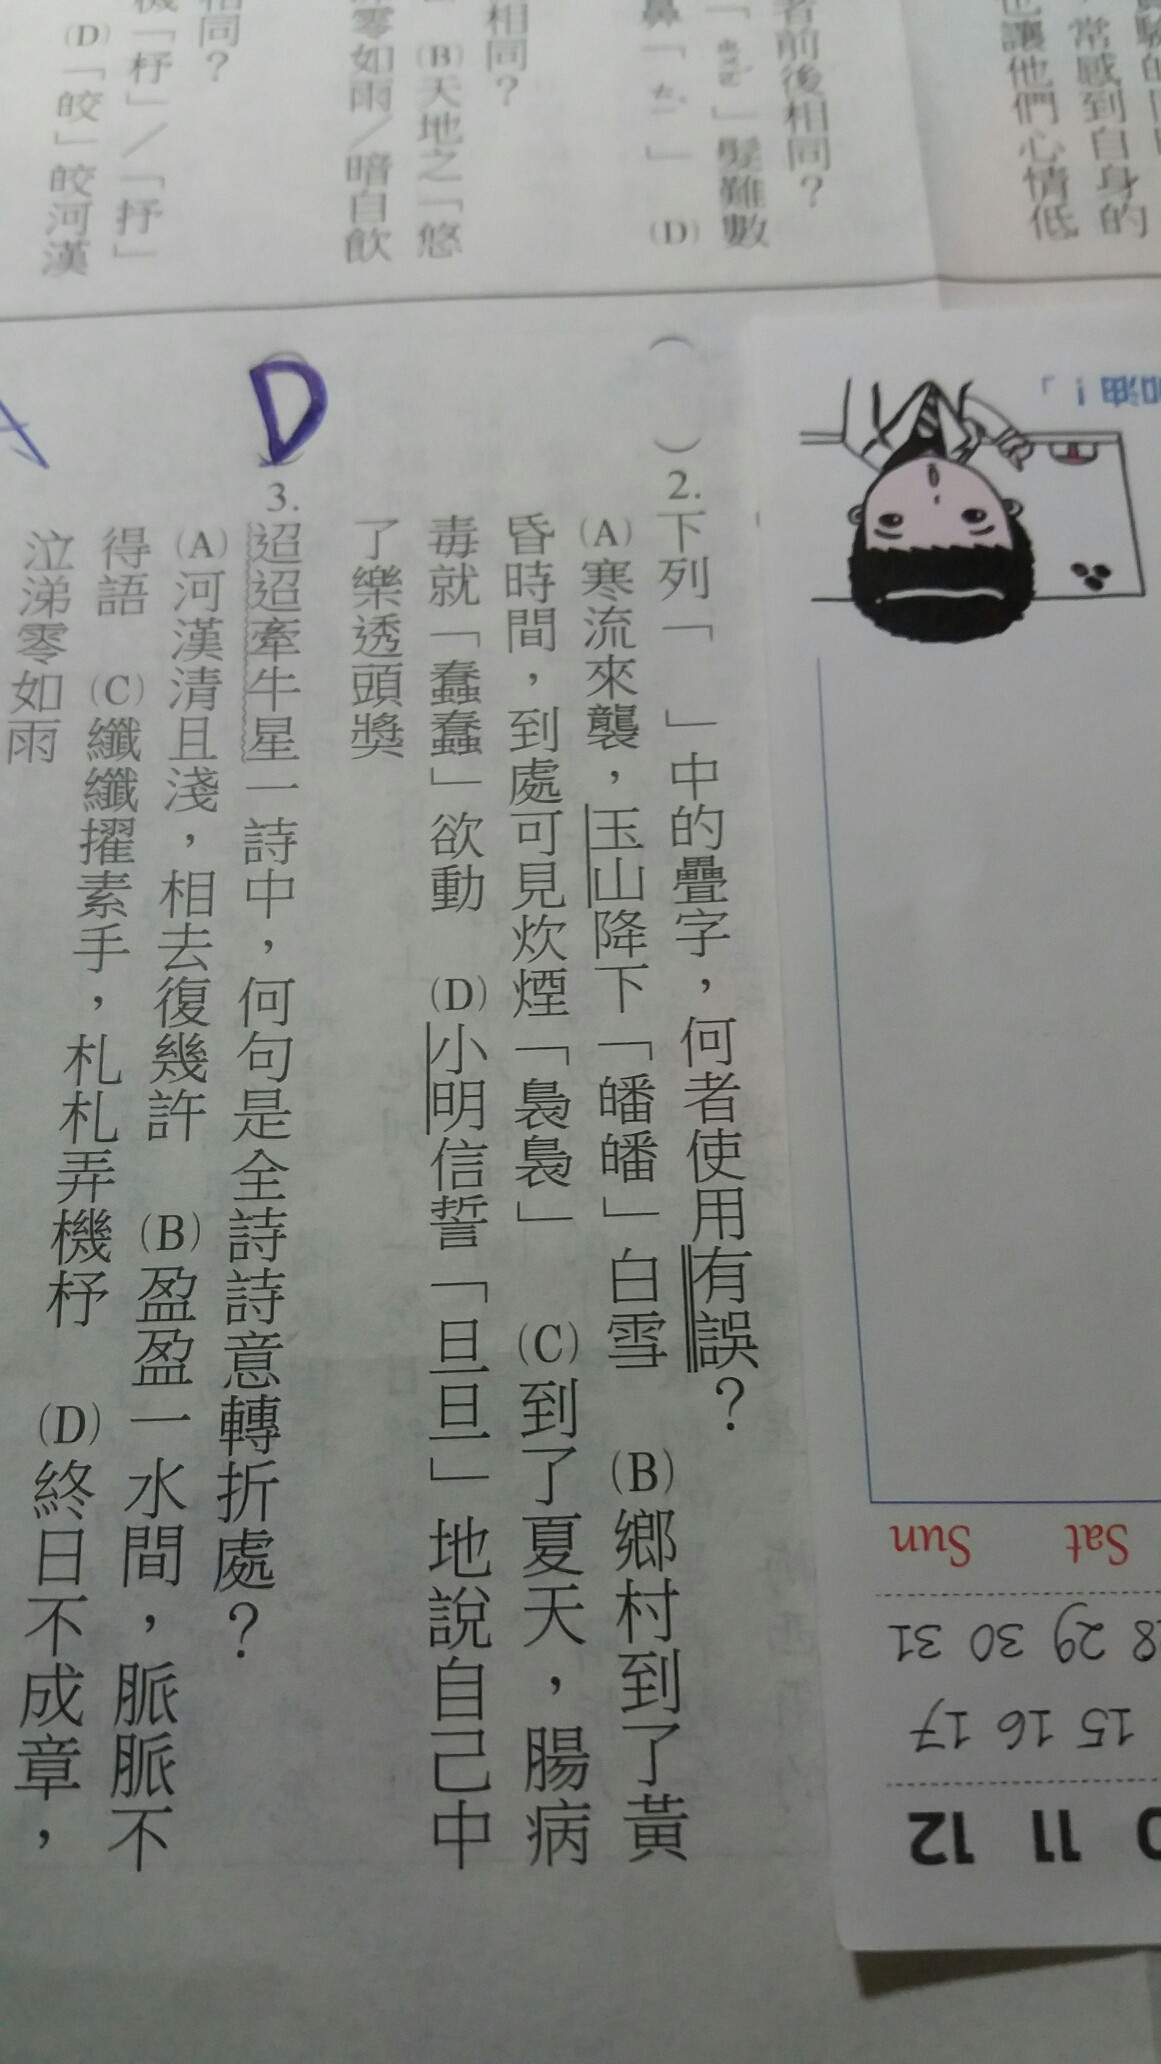 常感到自身的
也讓他們心情低
者前後相同？
」髮難數
鼻「 」 (D)
相同？
(B)天地之「悠
零如雨／暗自飲
相同？
機「杼」／「抒」
(D)「皎」皎河漢
( )2.下列「 」中的疊字，何者使用有誤？
(A)寒流來襲，玉山降下「皤皤」白雪 (B)鄉村到了黃
昏時間，到處可見炊煙「裊裊」 (C)到了夏天，腸病
毒就「蠢蠢」欲動 (D)小明信誓「旦旦」地說自己中
了樂透頭獎
(D)3.迢迢牽牛星一詩中，何句是全詩詩意轉折處？
(A)河漢清且淺，相去復幾許 (B)盈盈一水間，脈脈不
得語 (C)纖纖擢素手，札札弄機杼 (D)終日不成章，
泣涕零如雨
加油！」
Sat Sun
29 30 31
15 16 17
11 12